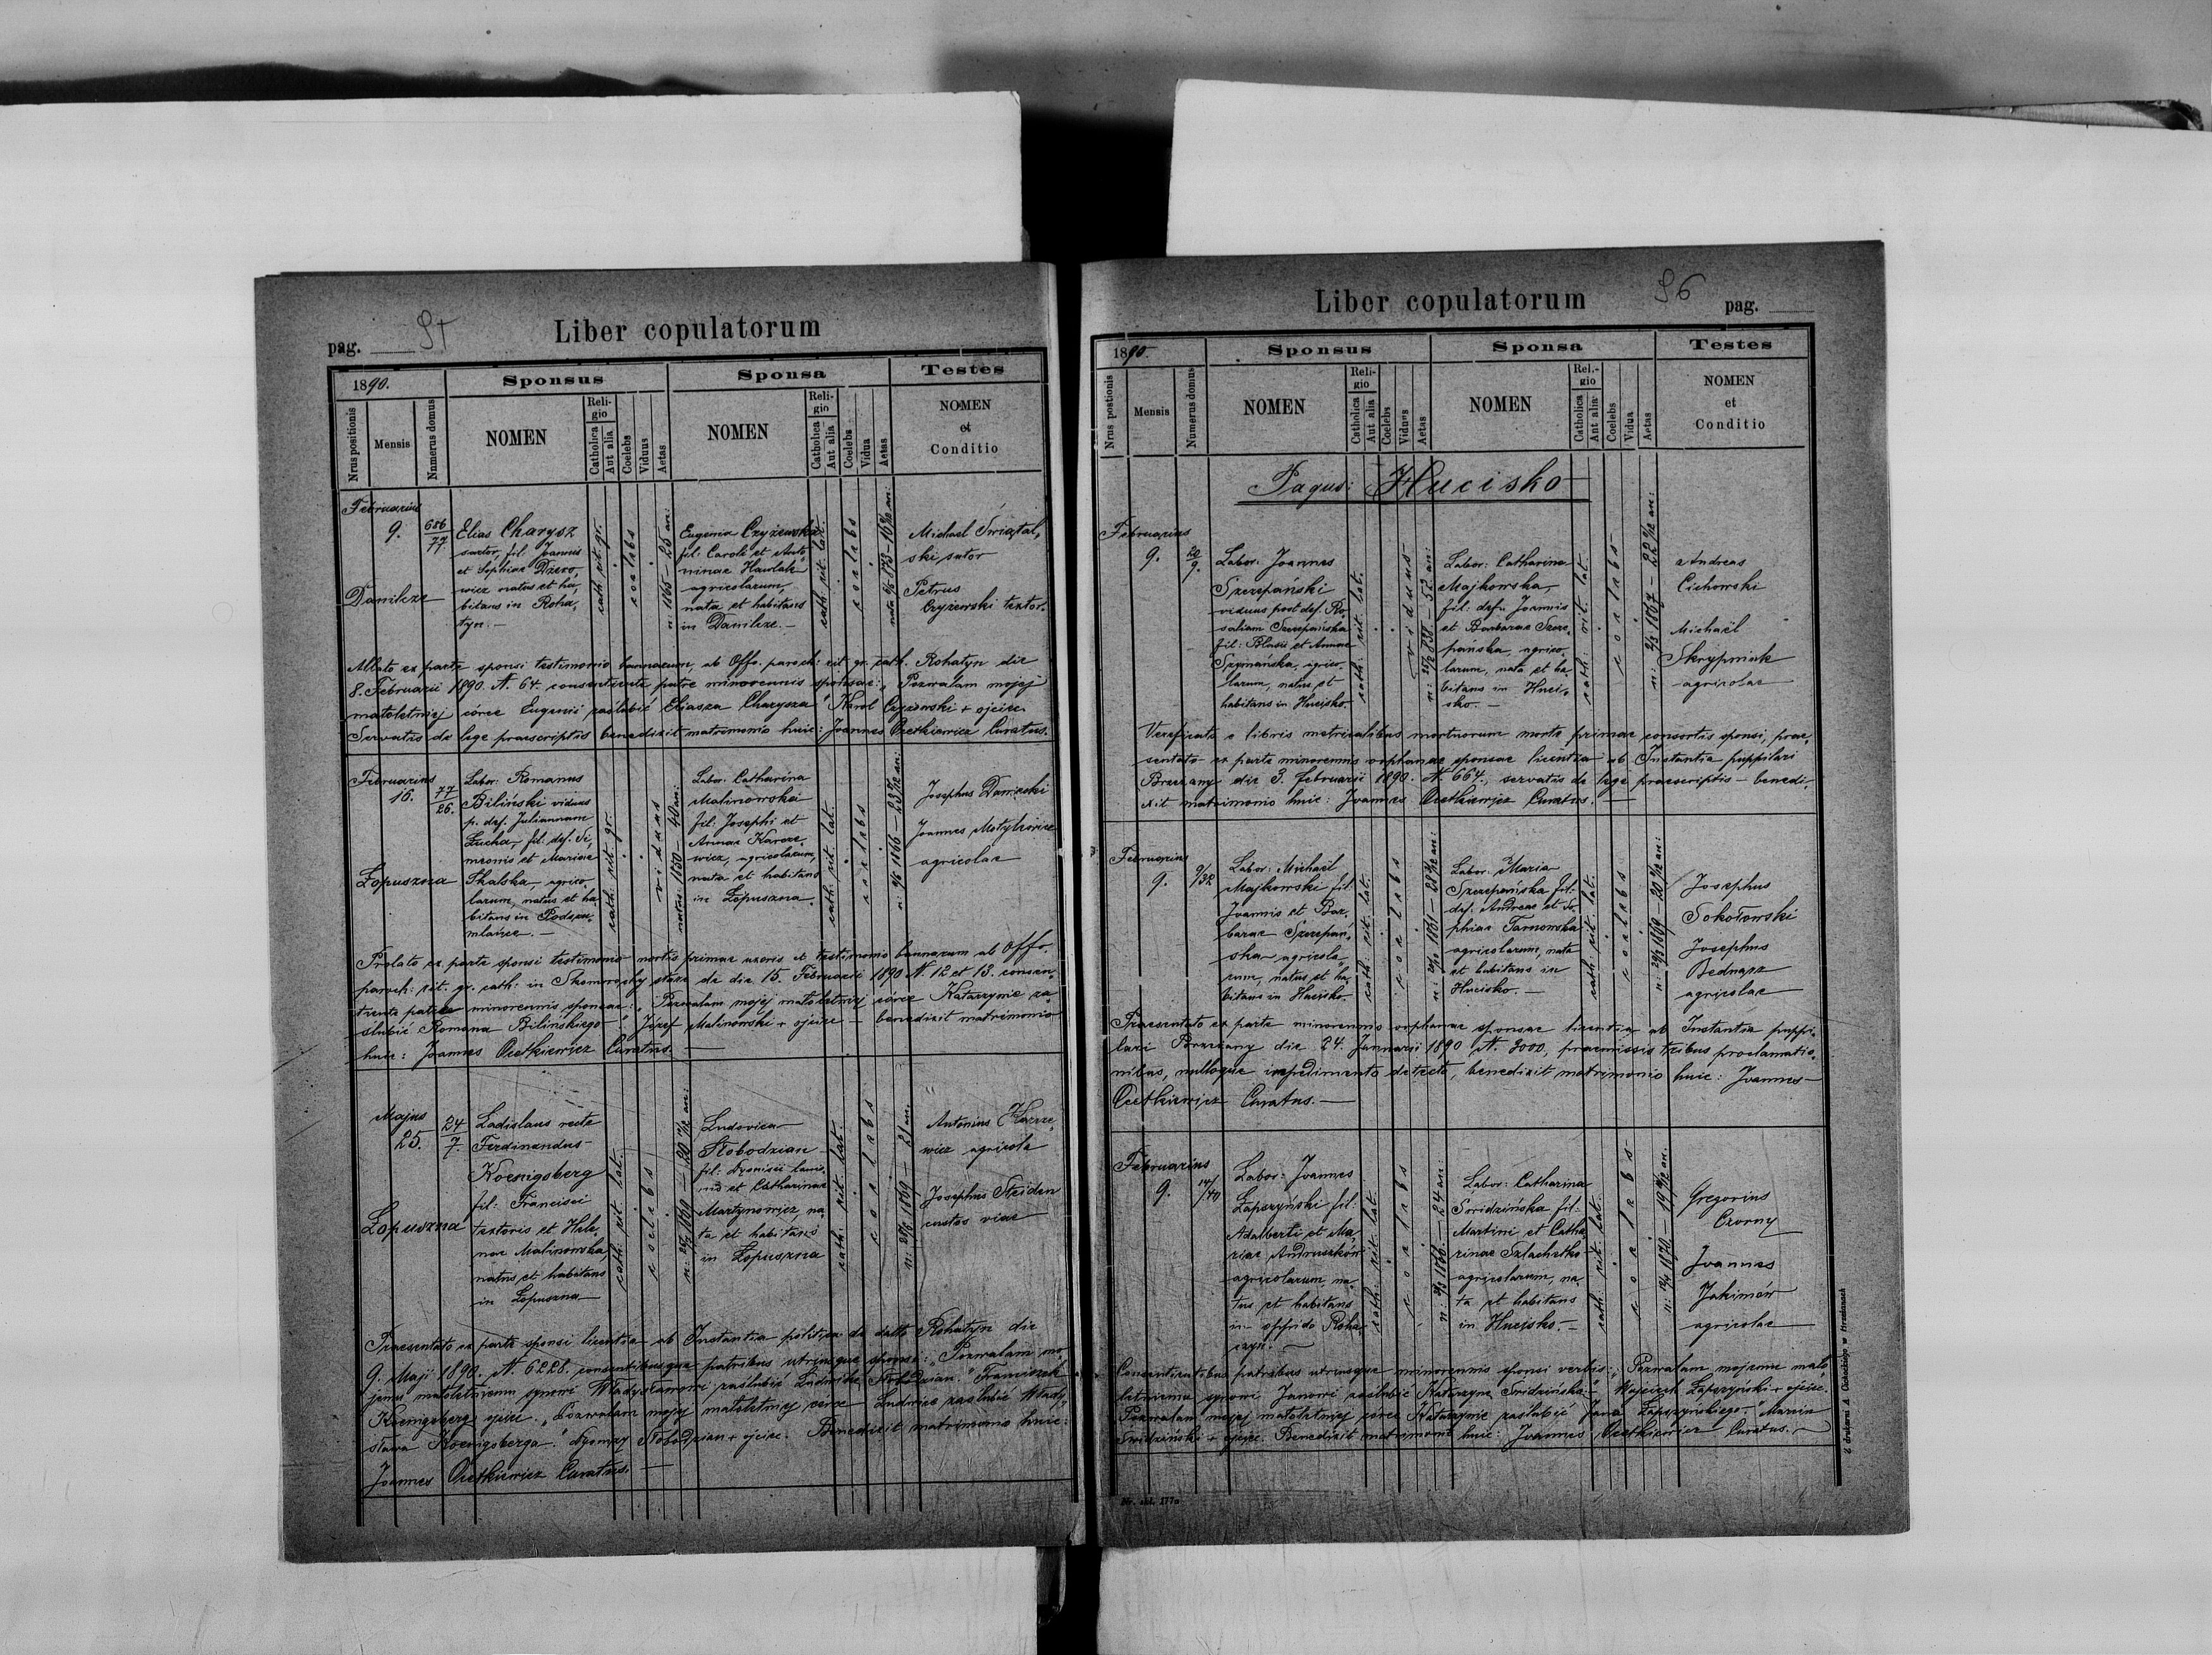 pag.
Liber copulatorum
1890.
Sponsus
Sponsa
Testes
Nrus positionis
Mensis
Numerus domus
NOMEN
Religio
Catholica
Aut alia
Coelebs
Viduus
Aetas
NOMEN
Religio
Catholica
Aut alia
Coelebs
Vidua
Aetas
NOMEN
et
Conditio
Februarius
9.
686/77
Danilcze
Elias Charysz
sartor, fil. Joannis
et Sophiae Dzero,
wicz natus et ha,
bitans in Roha,
tyn. –
cath. rit. gr.
coelebs
n: 1865 – 25 an:
Eugenia Czyżewska
fil. Caroli et Anto
ninae Hawlak
agricolarum,
nata et habitans
in Danilcze. –
cath. rit. lat.
coelebs
Michael Świątal,
ski sutor
Petrus
Czyżewski textor.
Allato ex parte sponsi testimonio bannorum, ab Offo. paroch: rit. gr. cath. Rohatyn die
8. Februarii 1890. N. 64. consentiente patre minorennis sponsae: „Pozwalam mojej
małoletniej córce Eugenii zaślubić Eliasza Charysza" Karol Czyżewski + ojciec
Servatis de lege praescriptis benedixit matrimonio huic: Joannes Ocetkiewicz Curatus.
Februarius
16.
77/26.
Łopuszna
Labor: Romanus
Biliński viduus
p. def. Juliannam
Łucha, fil. def. Si,
meonis et Mariae
Skalska, agrico,
larum, natus et ha,
bitans in Podszu,
mlańce. –
cath. rit. gr.
viduus
natus 1850 – 40 an:
Labor. Catharina
Malinowska
fil: Josephi et
Annae Karcze,
wicz, agricolarum,
nata et habitans
in Łopuszna.
cath. rit. lat.
coelebs
Josephus Danecki
Joannes Motylewicz
agricolae
Prolato ex parte sponsi testimonio mortis primae uxoris et testimonio bannorum ab Offo.
paroch: rit. gr. cath: in Skomorochy stare de die 15. Februarii 1890 N. 12 et 13. consen,
tiente patre minorennis sponsae: „Pozwalam mojej małoletniej córce Katarzynie za,
ślubić Romana Bilińskiego" Józef Malinowski + ojciec – benedixit matrimonio
huic: Joannes Ocetkiewicz Curatus. –
Majus
25.
24/7.
Łopuszna
Ladislaus recte
Ferdinandus –
Koenigsberg
fil: Francisci
textoris et Hele,
nae Malinowska,
natus et habitans
in Łopuszna
cath: rit. lat.
coelebs
Ludovica
Słobodzian
fil: Dyonisii lanio,
nis et Catharinae
Martynowicz na,
ta et habitans
in Łopuszna
cath: rit. lat.
coelebs
Antonius Karcze,
wicz agricola
Josephus Striden
custos viae
Praesentato ex parte sponsi licentia ab Instantia politica de datto Rohatyn die
9. Maji 1890. N. 6228. consentibusque patribus utriusque sponsi: „Pozwalam mo,
jemu małoletniemu synowi Władysławowi zaślubić Ludwikę Słobodzian." Franciszek
Koenigsberg ojciec. „Pozwalam mojej małoletniej córce Ludwice zaślubić Włady,
sława Koenigsberga." Dyonizy Słobodzian + ojciec. Benedixit matrimonio huic:
Joannes Ocetkiewicz Curatus. –
Liber copulatorum
96
pag.
1890.
Sponsus
Sponsa
Testes
Nrus positionis
Mensis
Numerus domus
NOMEN
Religio
Catholica
Aut alia
Coelebs
Viduus
Aetas
NOMEN
Rel.-gio
Catholica
Aut alia
Coelebs
Vidua
Aetas
NOMEN
et
Conditio
Pagus: Hucisko
Februarius
9.
20/9.
Labor. Joannes
Szczepański
viduus post def. Ro,
saliam Szczepańska
fil: Blasii et Annae
Szymańska, agrico,
larum, natus et
habitans in Hucisko.
cath: rit. lat.
viduus
Labor: Catharina
Majkowska,
fil: defu Joannis
et Barbarae Szcze,
pańska, agrico,
larum, nata et ha,
bitans in Huci,
sko. –
cath: rit. lat.
coelebs
Andreas
Cichowski
Michaël
Skrypniak
agricolae
Verificata e libris metricalibus mortuorum morte primae consortis sponsi, prae,
sentato ex parte minorennis orphanae sponsae licentia ab Instantia puppilari
Brzeżany die 3. Februarii 1890. N. 664. servatis de lege praescriptis – benedi,
xit matrimonio huic: Joannes Ocetkiewicz Curatus. –
Februarius
9.
9/32
Labor: Michaël
Majkowski fil:
Joannis et Bar,
barae Szczepań,
ska agricola,
rum, natus et ha,
bitans in Hucisko.
cath: rit. lat.
coelebs
Labor: Maria
Szczepańska fil:
def: Andreae et So,
phiae Tarnowska
agricolarum, nata
et habitans in
Hucisko. –
cath. rit. lat.
coelebs
Josephus
Sokołowski
Josephus
Bednarz
agricolae
Praesentato ex parte minorennis orphanae sponsae licentia ab Instantia puppi,
lari Brzeżany die 24. Januarii 1890 N. 3000, praemissis tribus proclamatio,
nibus, nulloque impedimento detecto, benedixit matrimonio huic: Joannes –
Ocetkiewicz Curatus. –
Februarius
9.
14/40
Labor: Joannes
Łapszyński fil:
Adalberti et Ma,
riae Andruszków
agricolarum, na,
tus et habitans
in oppido Roha,
czyn. –
cath: rit. lat.
coelebs
Labor: Catharina
Swidzińska fil:
Martini et Catha,
rinae Szlachetko
agricolarum, na,
ta et habitans
in Hucisko. –
cath. rit. lat.
coelebs
Gregorius
Czorny
Joannes
Jakimów
agricolae
Consentientibus patribus utriusque minorennis sponsi verbis: „Pozwalam mojemu mało,
letniemu synowi Janowi zaślubić Katarzynę Swidzińską." Wojciech Łapszyński + ojciec.
„Pozwalam mojej małoletniej córce Katarzynie zaślubić Jana Łapszyńskiego." Marcin
Swidziński + ojciec. Benedixit matrimonio huic: Joannes Ocetkiewicz Curatus. –
Z drukarni A. Cichockiego w Brzeżanach